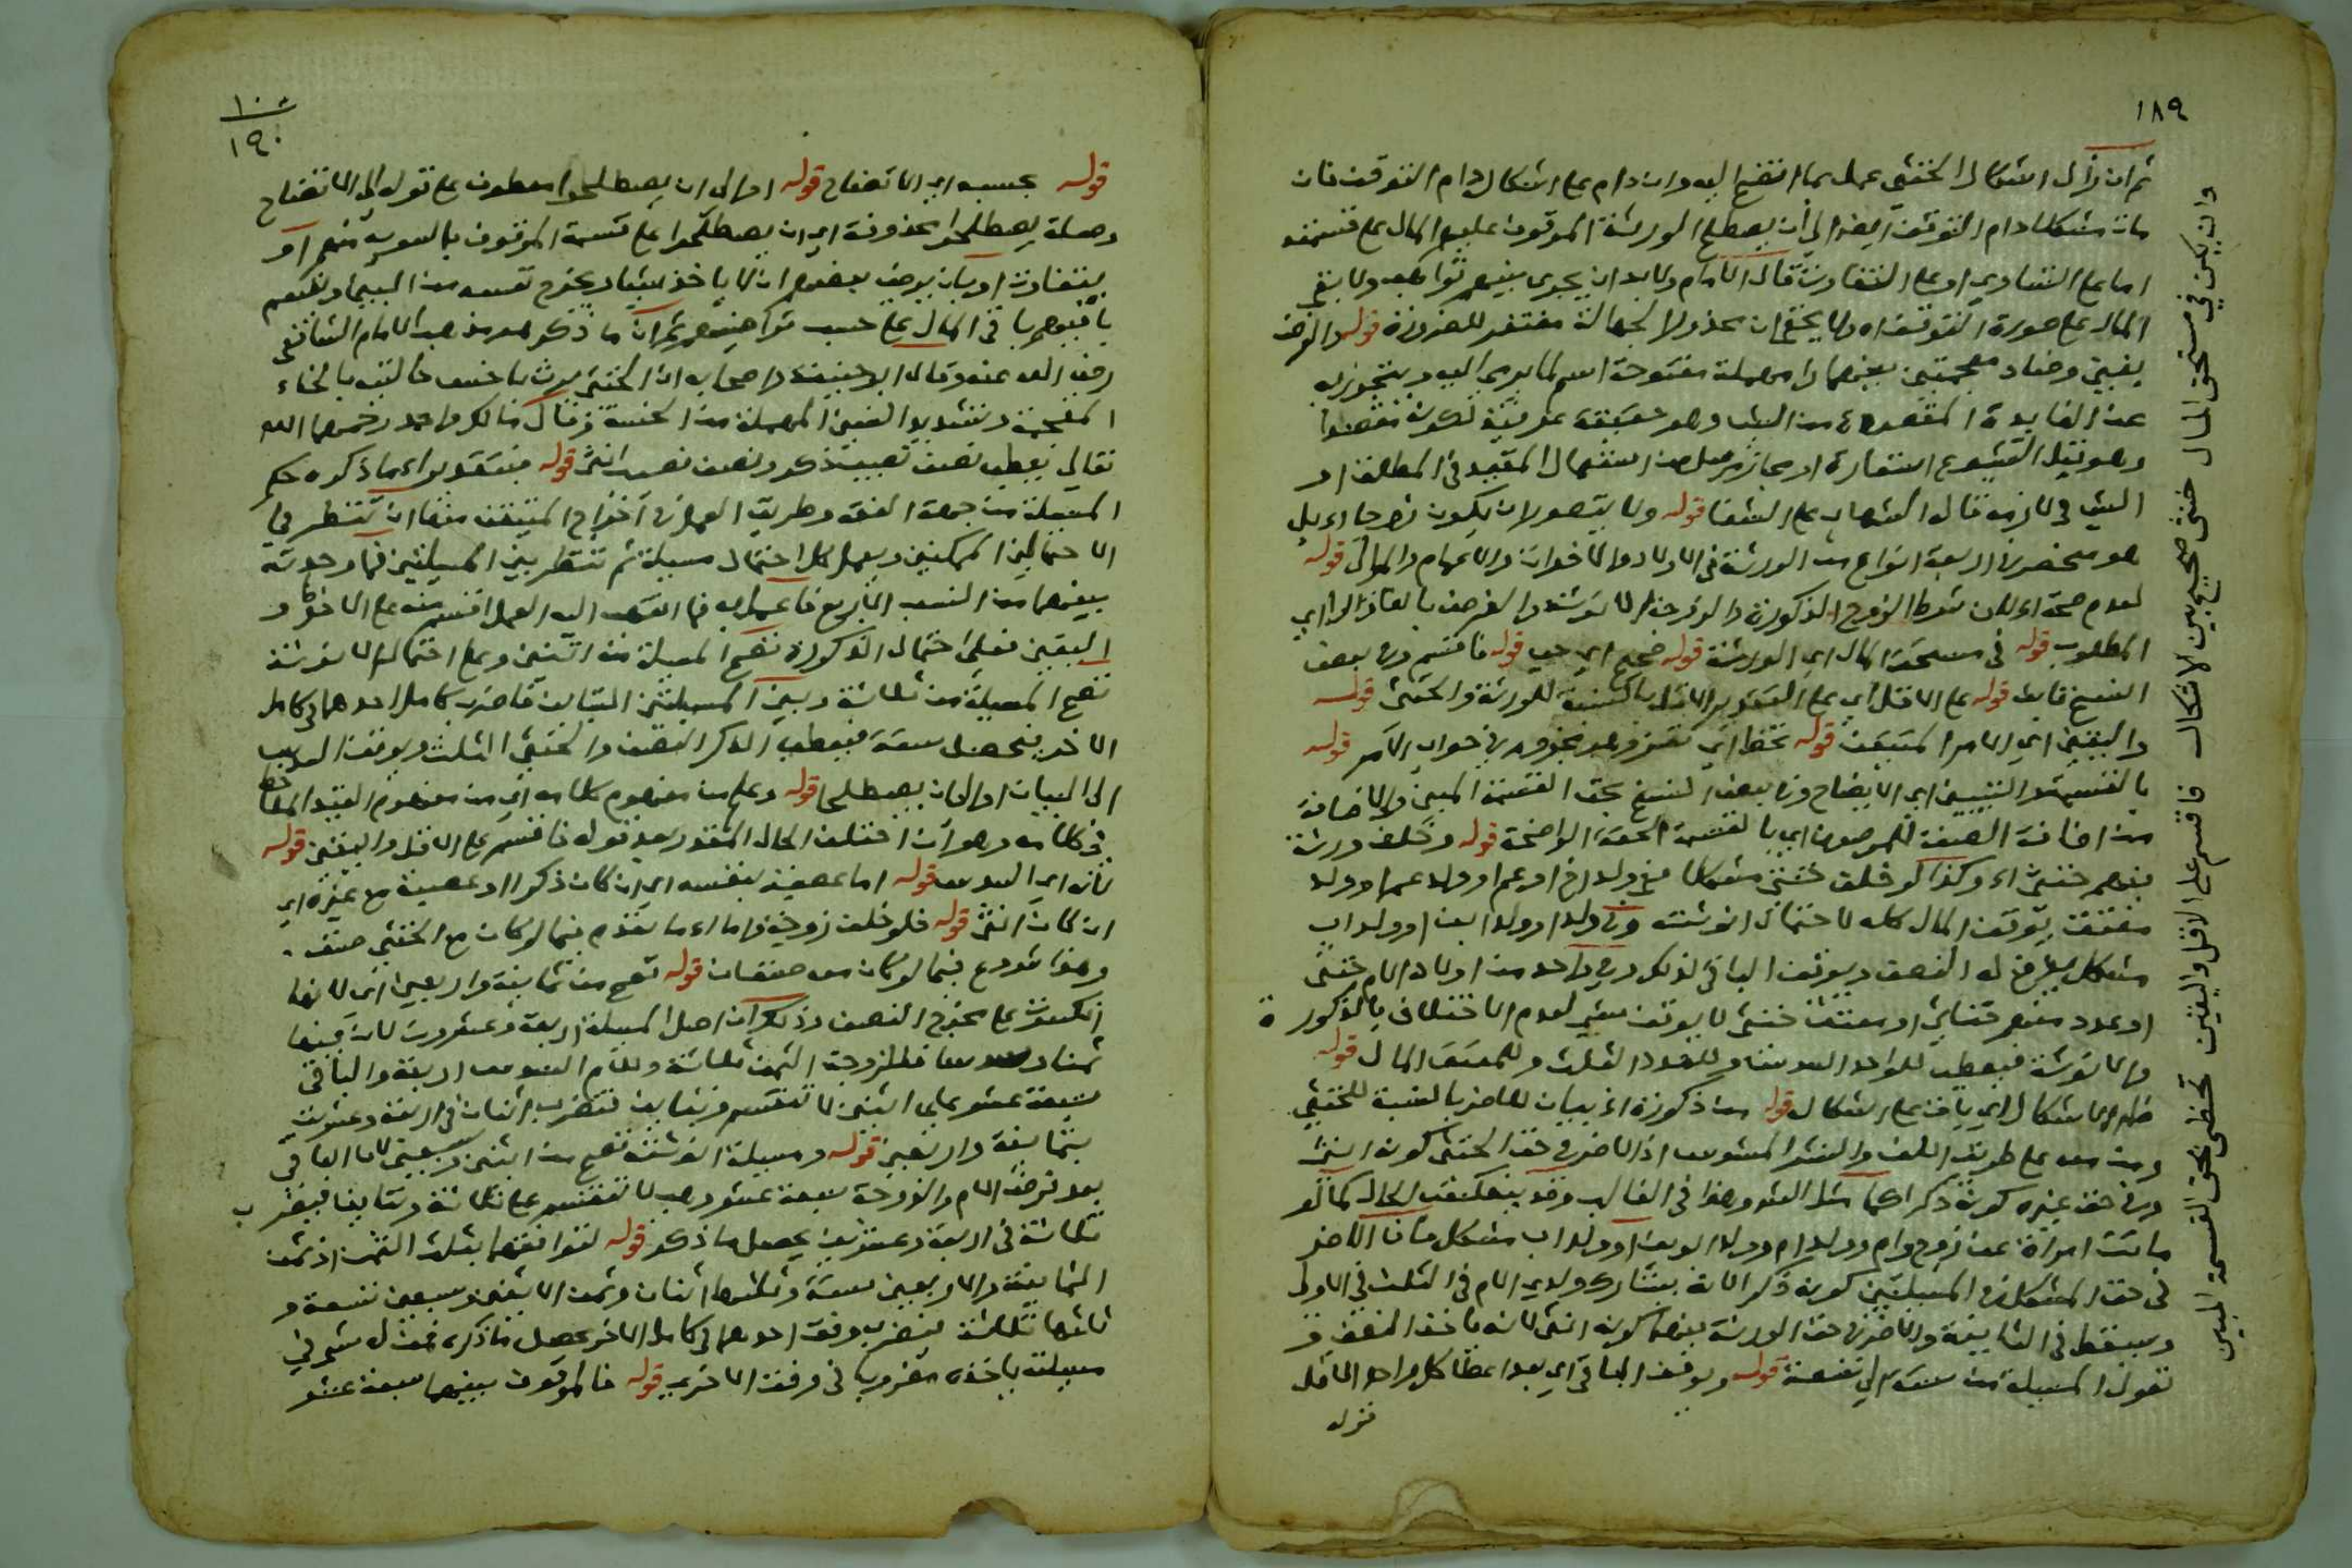 ١٨٩
ثم ان زال اشكال الخنثى عمل بما اتضح اليه وان دام على اشكاله دام التوقف فان
مات مشكلا دام التوقف ايضا الى أن يصطلح الورثة الموقوف عليهم المال على قسمته
اما على التساوي او على التفاوت قال الامام ولابد ان يجري بينهم تواهب ولا يبقى
المال على صورة التوقف اه ولا يخفى ان هذه الجهالة مغتفر للضرورة قوله والغرض
بغين وضاد معجمتين بينهما را مهملة مفتوحة اسم لما يرمى اليه ويتجوز به
عن الفايدة المقصودة من الشي وهو حقيقة عرفية
الشي في لازمه قال الشهاب على الشفا قوله ولا يتصور ان يكون زوجا اه بل
هو منحصر في اربعة انواع من الورثة في الاولاد والاخوات والاعمام والموالى قوله
لعدم صحة اه لان شرط الزوج الذكورة والزوجة الانوثة والغرض بالغاز والراى
المطلوب قوله في مستحق المال اي الورثة قوله صحيح اي حيي قوله فاقسم وفي بعض
النسخ قابل قوله على الاقل اي على التقدير الاقل بالنسبة للورثة والخنثى قوله
واليقين اي الامر المتيقن قوله تحظ اي تفز وهو مجزوم في جواب الامر قوله
بالقسمة والتبيين اي الايضاح وفي بعض النسخ بحق القسمة المبين والاضافة
من اضافة الصفة للموصوف اي بالقسمة الحقة الواضحة قوله وخلف ورثة
فيهم خنثى اه وكذا لو خلف خنثى مشكلا فهي ولد اخ او عم او ولد عم او ولد
معتقف يوقف المال كله لاحتمال انوثته وفي ولد او ولد ابن او ولد اب
مشكل يفرض له النصف ويوقف الباقي لذلك وفي واحد من اولاد الام خنثى
او عدد منهم خناثى او معتقا خنثى لا يوقف شي لعدم الاختلاف بالذكورة
والانوثة فيعطى للواحد السدس وللعدد الثلث وللمعتق المال قوله
ظاهر الاشكال اي باق على اشكاله قوله من ذكورة اه بيان للاضر بالنسبة للخنثى
ومن معه على طريق اللف والنشر المشوش اذ الاضر في حق الخنثى كونه انثى
وفي حق غيره كونه ذكرا كما مثل الشو وهذا في الغالب وقد ينعكس الحال كما لو
ماتت امراة عن زوج وام وولد ام وولد ابوين او ولد اب مشكل فان الاضر
في حق المشكل في المسيلتين كونه ذكرا لانه يشارك ولدي الام في الثلث في الاولى
ويسقط في الثانية والاضر في حق الورثة فيهما كونه انثى لانه ياخذ النصف و
تعول المسيلة من ستة الى تسعة قوله ويوقف الباقي اي بعد اعطا كل واحد الاقل
قوله
وان يكن في مستحق المال خنثى صحيح بين الاشكال فاقسم على الاقل واليقين تحظى بحق القسمة المبين
١٩٠
قوله بحسبه اي الاتضاح قوله او الى ان يصطلحوا معطوف على قوله الى الاتضاح
وصلة يصطلحوا محذوفة اي ان يصطلحوا على قسمة الموقوف بالسوية منهم او
بتفاوت او بان يرضى بعضهم ان لا ياخذ شيا ويخرج نفسه من البين ويقتسم
باقيهم باقي المال على حسب تراضيهم ثم ان ما ذكر هو مذهب الامام الشافعي
رضي الله عنه وقال ابو حنيفة واصحابه ان الخنثى يرث باخس حالتيه بالخاء
المعجمة وتشديد السين المهملة من الخسة وقال مالك واحمد رحمهما الله
تعالى يعطى نصف نصيب ذكر ونصف نصيب انثى قوله فبتقدير اه ما ذكره حكم
المسيلة من جهة الفقه وطريق العمل في اخراج المتيقن منها ان تنظر في
الاحتمالين الممكنين ويعمل كل احتمال مسيلة ثم تنظر بين المسيلتين فما وجدته
بينهما من النسب الاربع فاعمل به فما انتهى اليه العمل اقسم منه على الاضر و
اليقين فعلى احتمال الذكورة تصح المسيلة من اثنين وعلى احتمال الانوثة
تصح المسيلة من ثلاثة وبين المسيلتين التباين فاضرب كامل احدهما في كامل
الاخر يتحصل ستة فيعطى الذكر النصف والخنثى الثلث ويوقف السدس
الى البيان او الى ان يصطلحا قوله وعلم من مفهوم كلامه اي من مفهوم القيد الملاحظ
في كلامه وهو ان اختلف الحال المقدر بعد قوله فاقسم على الاقل واليقين قوله
لانه اي السدس قوله اما عصبة بنفسه اي ان كان ذكرا او عصبة مع غيره اي
ان كان انثى قوله فلو خلف زوجة واما اه ما تقدم فيما لو كان مع الخنثى صنف
وهذا شروع فيما لو كان معه صنفان قوله تصح من ثمانية واربعين اي لانها
انكسرت على مخرج النصف وذلك ان اصل المسيلة اربعة وعشرون لان فيها
ثمنا وسدسا فللزوجة الثمن ثلاثة وللام السدس اربعة والباقي
سبعة عشر على اثنين لا تنقسم وتباين فتضرب اثنان في اربعة وعشرين
بثمانية واربعين قوله ومسيلة انوثته تصح من اثنين وسبعين لان الباقي
بعد فرض الام والزوجة سبعة عشر وهي لا تنقسم على ثلاثة وتباينها فيضرب
ثلاثة في اربعة وعشرين يحصل ما ذكر قوله لتوافقهما بثلث الثمن اذ ثمن
الثمانية والاربعين ستة وثلثها اثنان وثمن الاثنين وسبعين تسعة و
ثلثها ثلاثة فيضرب وفق احدهما في كامل الاخر يحصل ما ذكره فمن له شي في
مسيلة ياخذه مضروبا في وفق الاخرى قوله فالموقوف بينهما سبعة عشر